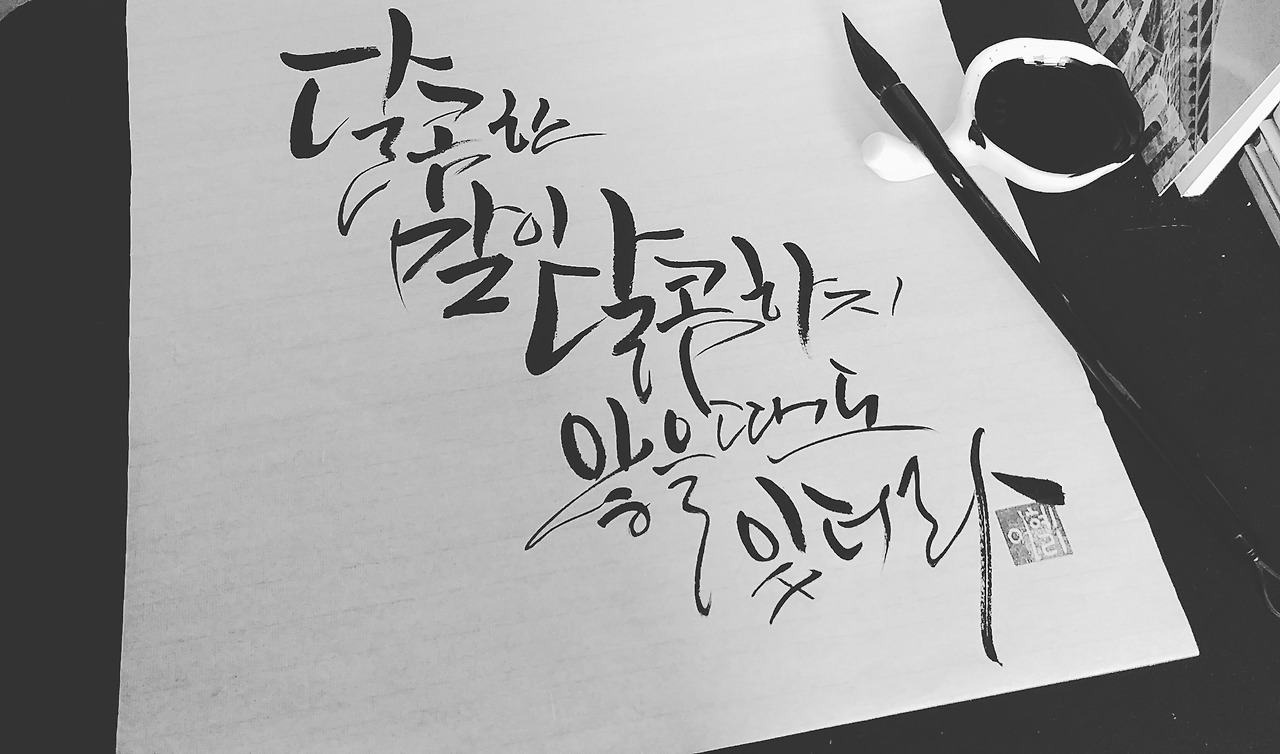 달콤한
말이 달콤하지
않을때도
있더라